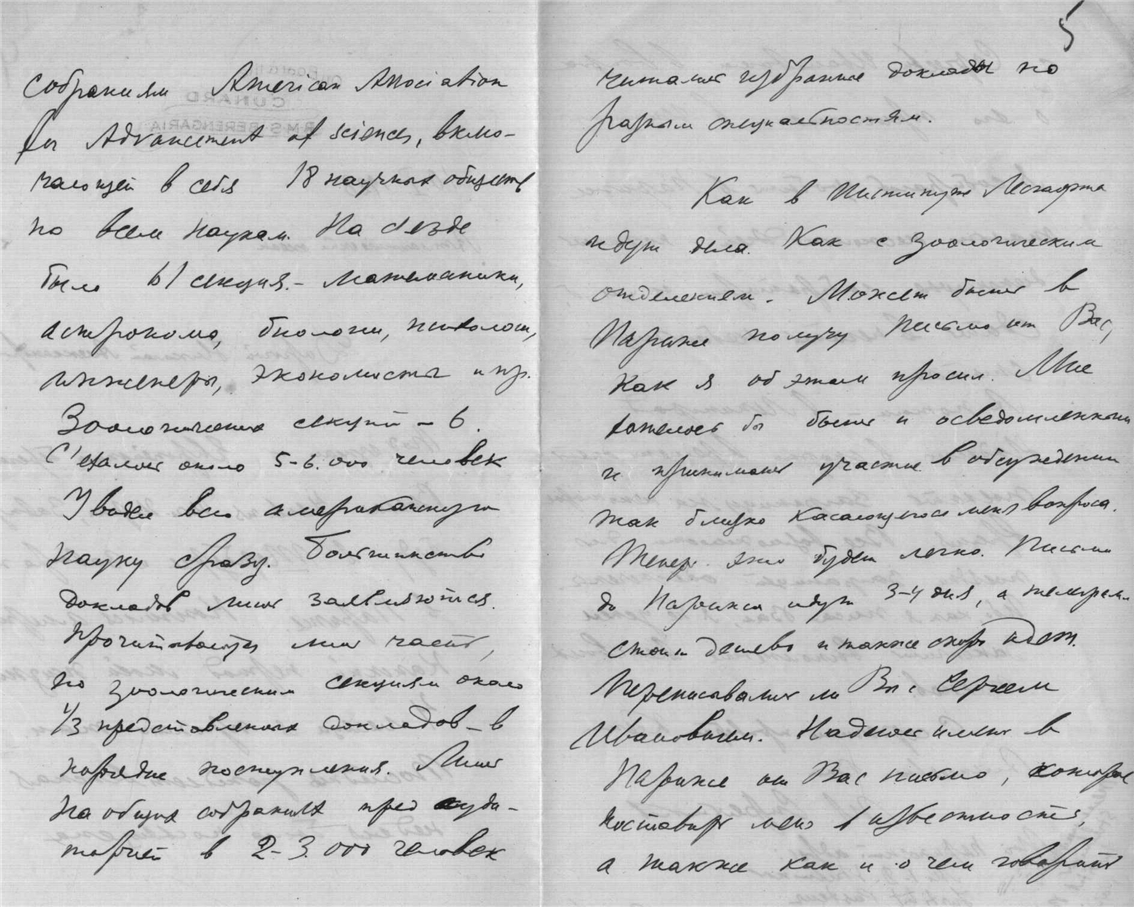 собраниям American Association
for Advancement of sciences, вклю-
чающей в себя 18 научных обществ
по всем наукам. На съезде
было 61 секция. - математики,
астрономы, биологи, психологи,
инженеры, экономисты и пр.
Зоологических секций - 6.
С'ехалось около 5-6.000 человек
Я видел всю американскую
науку сразу. Большинство
докладов лишь заявляются.
Прочитывается лишь часть,
по зоологическим секциям около
1/3 представленных докладов - в
порядке поступления. Лишь
на общих собраниях пред ауди-
торией в 2-3.000 человек
5
читались избранные доклады по
разным специальностям.
Как в Институте Лесгафта
идут дела. Как с зоологическим
отделением. Может быть в
Париже получу письмо от Вас,
как я об этом просил. Мне
хотелось бы быть и осведомленным
и принимать участие в обсуждении
так близко касающегося меня вопроса.
Теперь это будет легко. Письма
до Парижа идут 3-4 дня, а телеграм.
стоит дешево и также скоро идет.
Переписывались ли Вы с Сергеем
Ивановичем. Надеюсь иметь в
Париже от Вас письмо, которое
поставит меня в известность,
а также как и о чем говорить